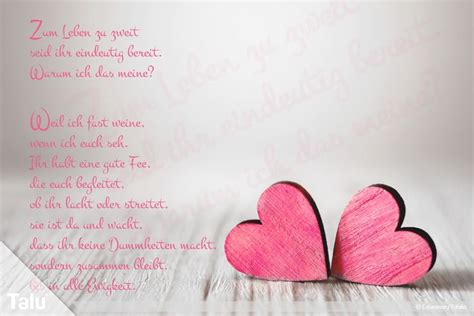 Zum Leben zu zweit
seid ihr eindeutig bereit.
Warum ich das meine?
Weil ich fast weine,
wenn ich euch seh.
Ihr habt eine gute Fee,
die euch begleitet,
ob ihr lacht oder streitet,
sie ist da und wacht,
dass ihr keine Dummheiten macht,
sondern zusammen bleibt,
bis in alle Ewigkeit.
Talu